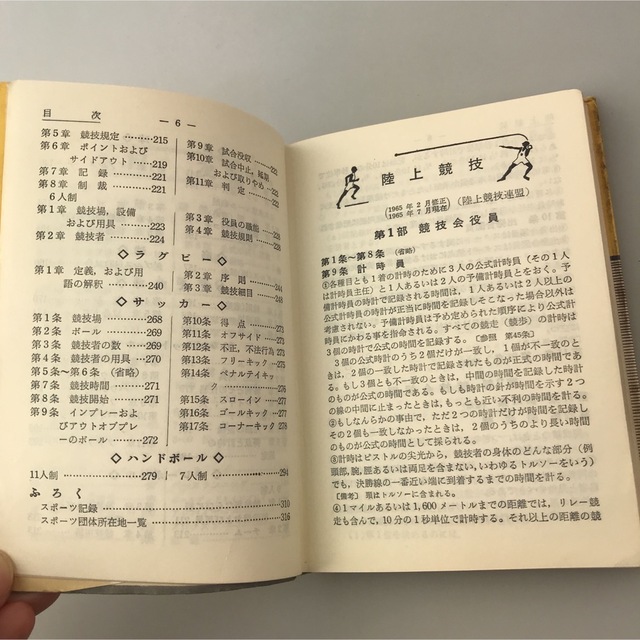 目次
—6—
第5章 競技規定………215
第6章 ポイントおよび
サイドアウト………219
第7章 記録………221
第8章 制裁………221
6人制
第1章 競技場，設備
および用具………223
第2章 競技者………224
第9章 試合没収
第10章 試合中止，延期
および取りやめ
第11章 判定
第3章 役員の職能
第4章 競技規則
◇ラグビー◇
第1章 定義，および用
語の解釈………240
第2章 序則
第3章 競技細目………248
◇サッカー◇
第1条 競技場………268
第2条 ボール………269
第3条 競技者の数………269
第4条 競技者の用具………270
第5条〜第6条（省略）
第7条 競技時間………271
第8条 競技開始………271
第9条 インプレーおよ
びアウトオブプレ
ーのボール………272
第10条 得点………273
第11条 オフサイド………273
第12条 不正，不法行為
第13条 フリーキック
第14条 ペナルティキッ
ク………276
第15条 スローイン………276
第16条 ゴールキック………277
第17条 コーナーキック………278
◇ハンドボール◇
11人制………279
7人制………294
ふろく
スポーツ記録………310
スポーツ団体所在地一覧………316
陸上競技
（1965年2月修正
1965年7月現在）（陸上競技連盟）
第1部 競技会役員
第1条〜第8条（省略）
第9条 計時員
①各種目とも1着の計時のために3人の公式計時員（その1人
は計時員主任）と1人あるいは2人の予備計時員とをおく。予
備計時員の時計で記録される時間は，1人あるいは2人以上の
公式計時員の時計が正当に時間を記録しそこなった場合以外は
考慮されない。予備計時員は予め定められた順序により公式計
時員にかわる事を指命される。すべての競走（競歩）の計時は
3個の時計で公式の時間を記録する。〔参照 第45条〕
3個の公式時計のうち2個だけが一致し，1個が不一致のと
きは，2個の一致した時計で記録されたものが正式の時間であ
る。もし3個とも不一致のときは，中間の時間を計時した時計
のものが公式の時間である。もしも時計の針が時間を示す2つ
の線の中間に止まったときは，もっとも近い不利の時間を計る。
②もしなんらかの事由で，ただ2つの時計だけが時間を記録し
その2個も一致しなかったときは，2個のうちのより長い時間
のものが公式の時間として採られる。
③計時はピストルの尖光から，競技者の身体のどんな部分（例
頭部，腕，脛あるいは両足を含まない，いわゆるトルソーをいう）
でも，決勝線の一番近い端に到着するまでの時間を計る。
〔備考〕 頸はトルソーに含まれる。
④1マイルあるいは1,600メートルまでの距離では，リレー競
走も含んで，10分の1秒単位で計時する。それ以上の距離の競